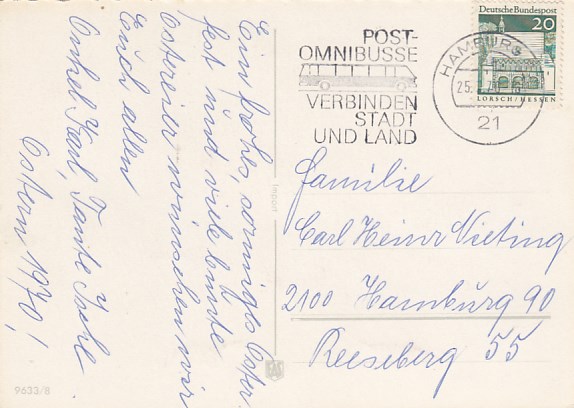 Ein frohes, sonniges Oster-
fest und viele bunte
Ostereier wünschen wir
Euch allen
Onkel Karl, Tante
Ostern 1970!
POST-
OMNIBUSSE
VERBINDEN
STADT
UND LAND
HAMBURG
25.
21
Deutsche Bundespost
20
LORSCH/HESSEN
Import
Familie
Carl Heinz Vieting
2100 Hamburg 90
Reeseberg 55
9633/8